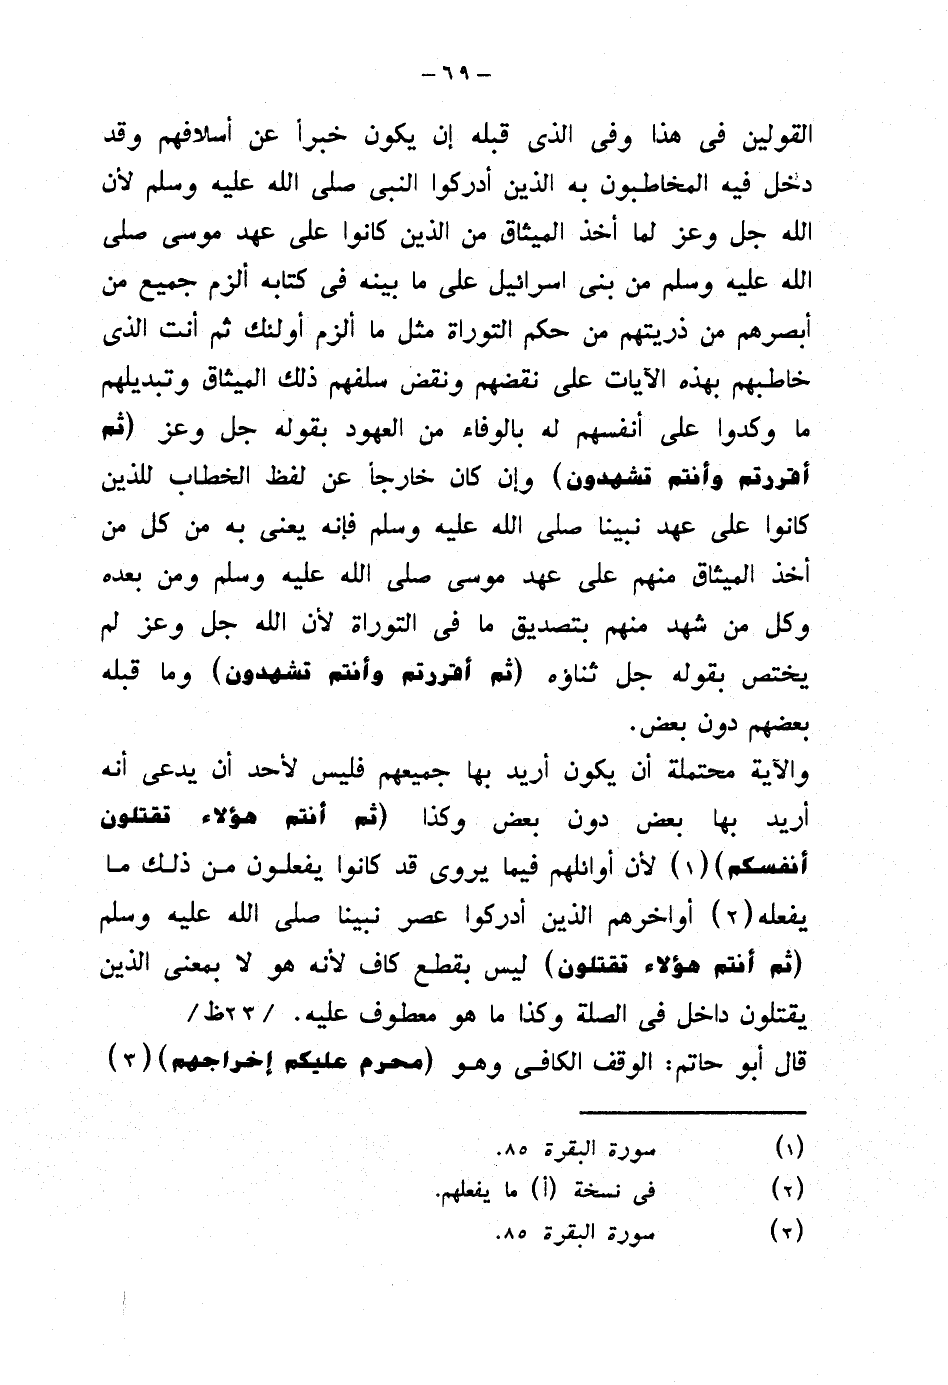 – ٦٩ –
القولين فى هذا وفى الذى قبله إن يكون خبراً عن أسلافهم وقد
دخل فيه المخاطبون به الذين أدركوا النبى صلى الله عليه وسلم لأن
الله جل وعز لما أخذ الميثاق من الذين كانوا على عهد موسى صلى
الله عليه وسلم من بنى اسرائيل على ما بينه فى كتابه ألزم جميع من
أبصرهم من ذريتهم من حكم التوراة مثل ما ألزم أولئك ثم أنت الذى
خاطبهم بهذه الآيات على نقضهم ونقض سلفهم ذلك الميثاق وتبديلهم
ما وكدوا على أنفسهم له بالوفاء من العهود بقوله جل وعز (ثم
أقررتم وأنتم تشهدون) وإن كان خارجاً عن لفظ الخطاب للذين
كانوا على عهد نبينا صلى الله عليه وسلم فإنه يعنى به من كل من
أخذ الميثاق منهم على عهد موسى صلى الله عليه وسلم ومن بعده
وكل من شهد منهم بتصديق ما فى التوراة لأن الله جل وعز لم
يختص بقوله جل ثناؤه (ثم أقررتم وأنتم تشهدون) وما قبله
بعضهم دون بعض.
والآية محتملة أن يكون أريد بها جميعهم فليس لأحد أن يدعى أنه
أريد بها بعض دون بعض وكذا (ثم أنتم هؤلاء تقتلون
أنفسكم)(١) لأن أوائلهم فيما يروى قد كانوا يفعلون من ذلك ما
يفعله(٢) أواخرهم الذين أدركوا عصر نبينا صلى الله عليه وسلم
(ثم أنتم هؤلاء تقتلون) ليس بقطع كاف لأنه هو لا بمعنى الذين
يقتلون داخل فى الصلة وكذا ما هو معطوف عليه. /٢٣ظ/
قال أبو حاتم: الوقف الكافى وهو (محرم عليكم إخراجهم)(٣)
(١) سورة البقرة ٨٥.
(٢) فى نسخة (أ) ما يفعلهم.
(٣) سورة البقرة ٨٥.